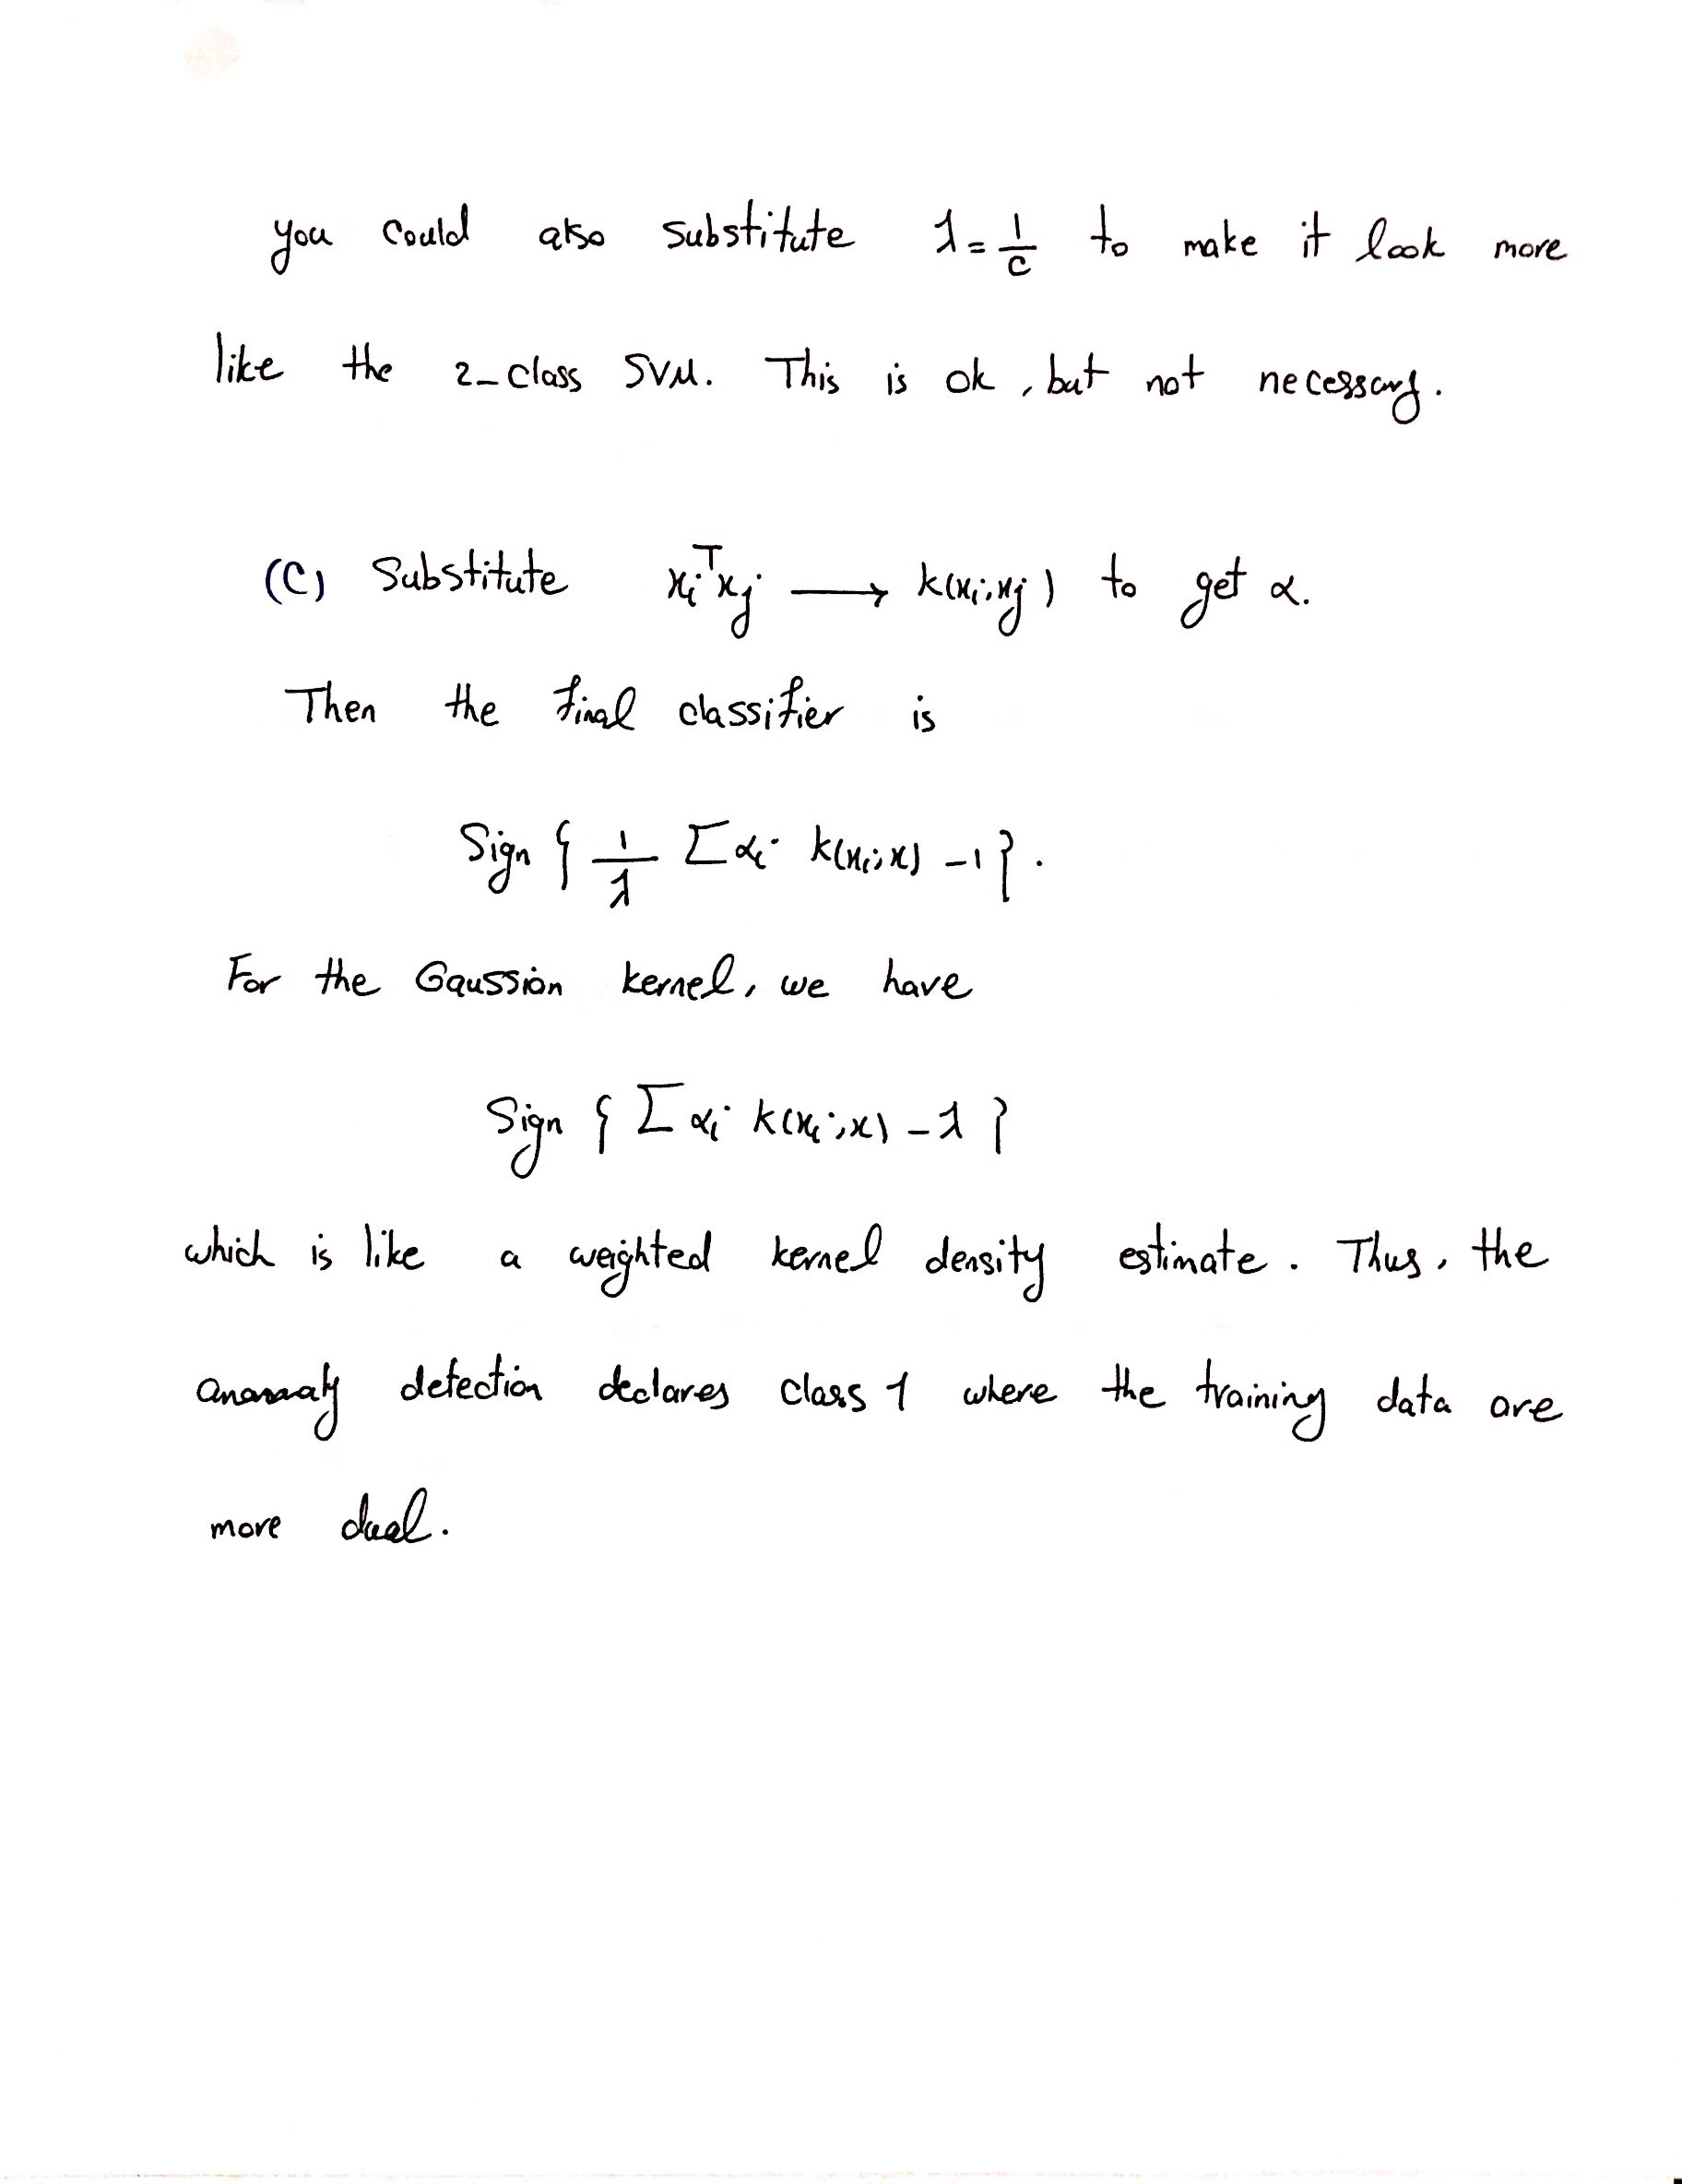 you could also substitute λ = 1/c to make it look more
like the 2-class SVM. This is ok, but not necessary.
(C) Substitute xᵢᵀxⱼ ⟶ k(xᵢ,xⱼ) to get α.
Then the final classifier is
Sign { 1/λ Σ αᵢ k(xᵢ,x) -1 }.
For the Gaussian kernel, we have
Sign { Σ αᵢ k(xᵢ,x) - λ }
which is like a weighted kernel density estimate. Thus, the
detection declares class 1 where the training data are
more dual.